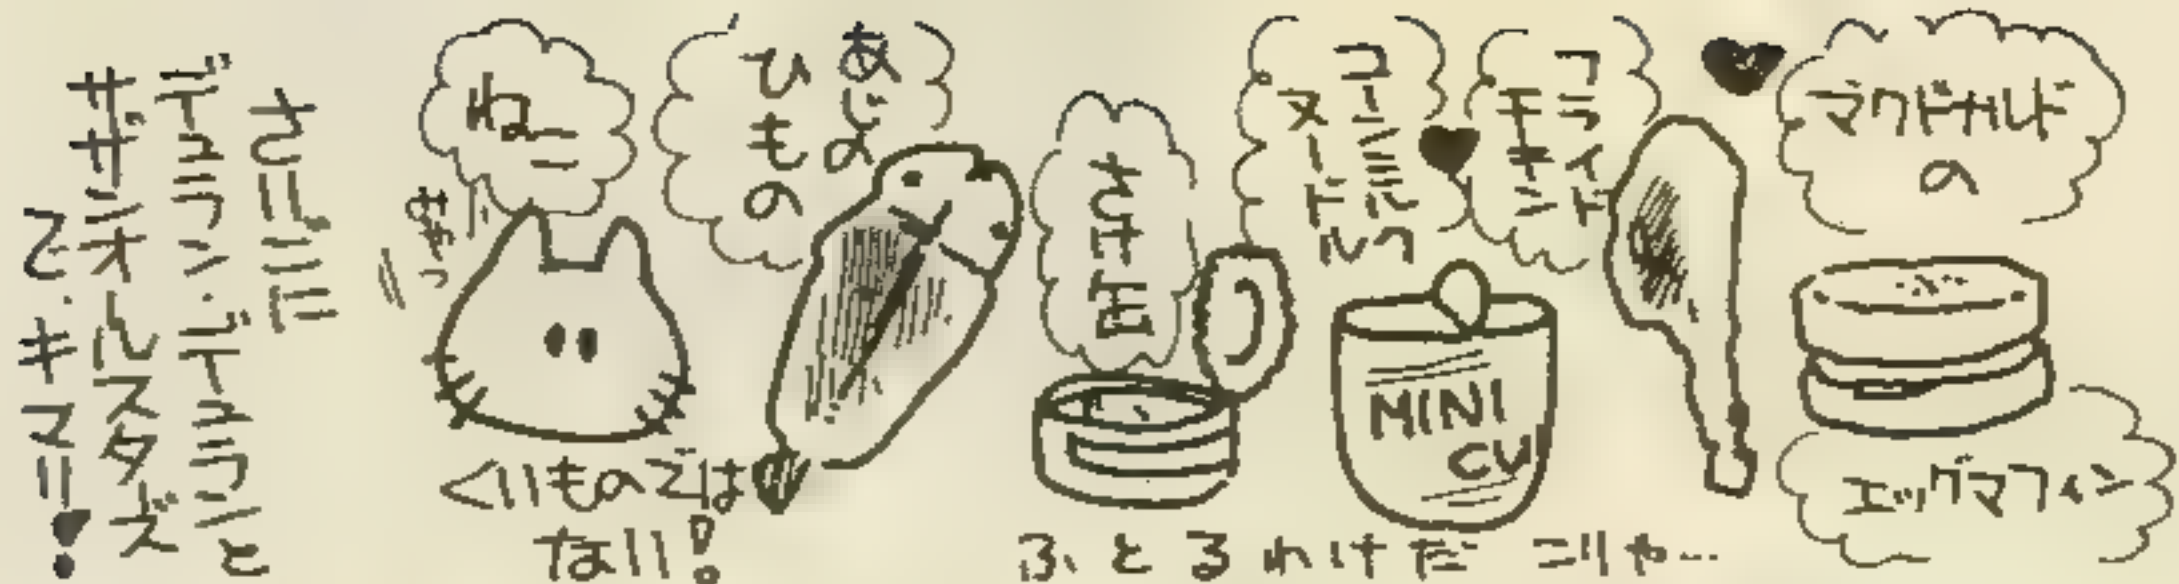 マクドナルド
の
エッグマフィン
フライド
チキン
コーンミルク
ヌードル
MINI
CU
さけ缶
ふとるわけだ こりゃ…
あじの
ひもの
ねこ
おやっ
くいものでは
ない!
さらに
デュラン・デュランと
サザンオールスターズ
で.キマリ!